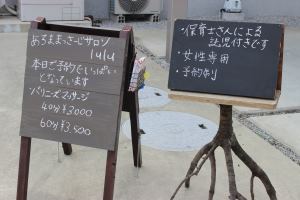 あろままっさーじサロン
lulu
本日ご予約でいっぱい
となっています
バリニーズマッサージ
40分 ¥3000
60分 ¥3,500
・保育士さんによる
託児付きです
・女性専用
・予約制